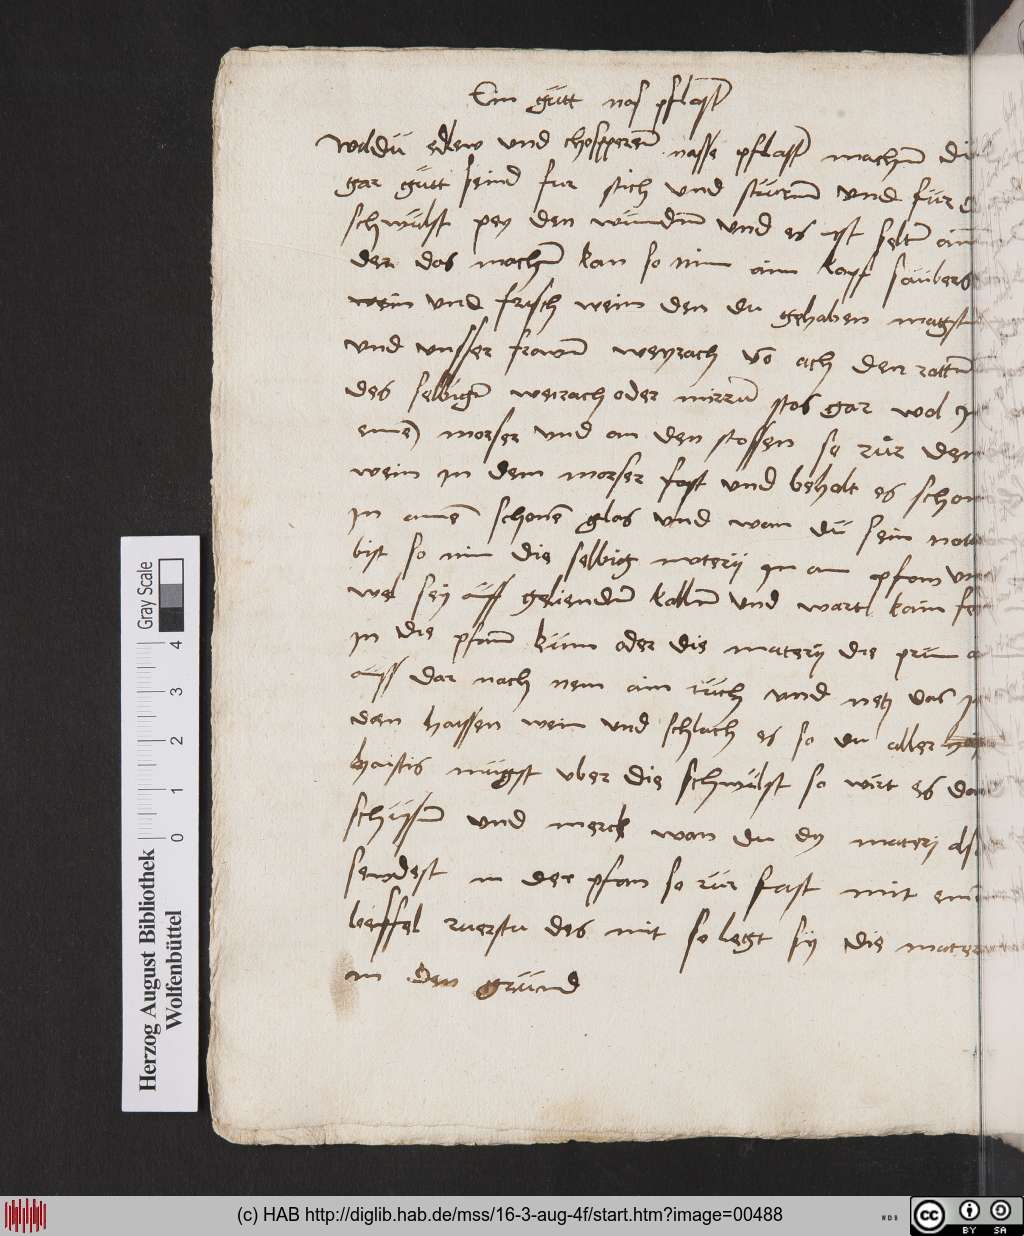 Ein gutt nas pflast
Woldu edlew und chospperen nasse pflast machen di
gar gutt seind fur stich und sturm und fur d
schwulst pey den wunden und es ist selten ain
der das machen kan so nim ain kopf saubers
wein und frisch wein den du gehaben magst
und unsser frowen weyrach vo ach den rotten
des selbigen weirach oder mirrum stos gar wol
einen morser und an den stossen se rur den
wein in dem morser fast und behalt es schon
in ainen schonen glas und wan du sein
bist so nim die selbig materij in ain pfann
we sey auff geliendem kollen und wart kain
in die pfann kum oder die materij die prun
auss dar nach nem ain tuch und netz das
den haissen wein und schlach es so du aller
haistis mugst uber die schwulst so wirt es
schiessen und merck wan du dy materij
seudest in der pfan so rur fast mit
leiffel ruerstu des mit so legt sy die mater
in den grund
Gray Scale
4 3 2 1 0
Herzog August Bibliothek
Wolfenbüttel
(c) HAB http://diglib.hab.de/mss/16-3-aug-4f/start.htm?image=00488
cc BY SA